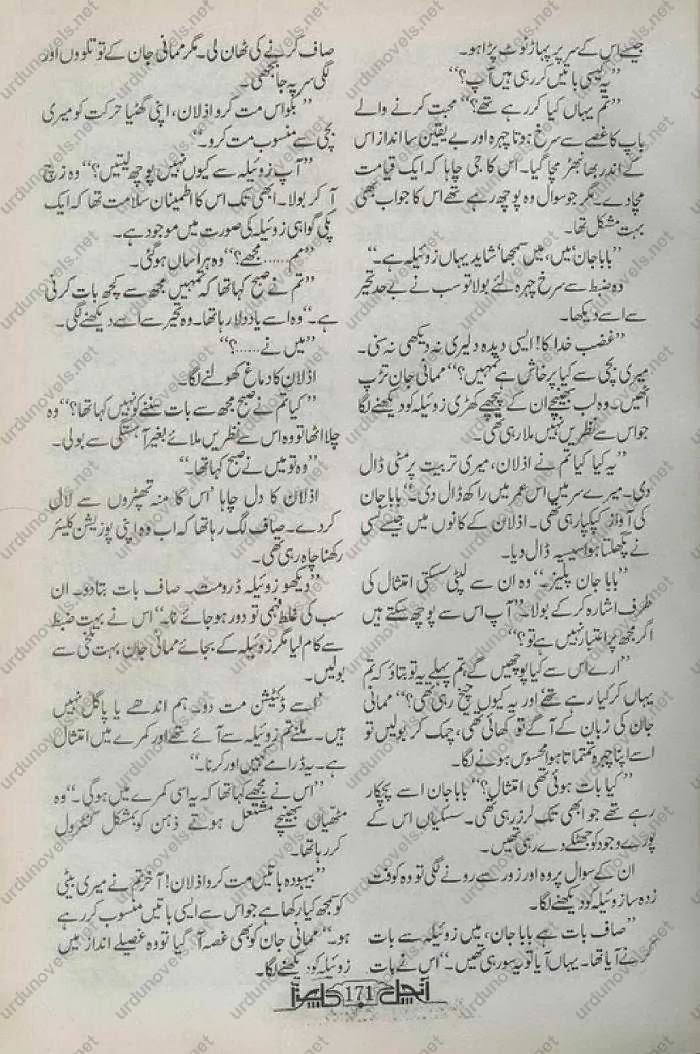 جیسے اس کے سر پر پہاڑ ٹوٹ پڑا ہو۔
”یہ کیسی باتیں کر رہی ہیں آپ؟“
”تم یہاں کیا کر رہے تھے؟“ محبت کرنے والے
باپ کا غصے سے سرخ ہوتا چہرہ اور بے یقین سا انداز اس
کے اندر بھانبھڑ مچا گیا۔ اس کا جی چاہا کہ ایک قیامت
مچا دے۔ مگر جو سوال وہ پوچھ رہے تھے اس کا جواب بھی
بہت مشکل تھا۔
”بابا جان‘ میں، میں سمجھا‘ شاید یہاں زوئیلہ ہے۔“
وہ ضبط سے سرخ چہرہ لئے بولا تو سب نے بے حد تحیر
سے اسے دیکھا۔
”غضب خدا کا! ایسی دیدہ دلیری نہ دیکھی نہ سنی۔
میری بچی سے کیا پرخاش ہے تمہیں؟“ ممانی جان تڑپ
اٹھیں۔ وہ لب بھینچے ان کے پیچھے کھڑی زوئیلہ کو دیکھنے لگا
جو اس سے نظریں نہیں ملا رہی تھی۔
”یہ کیا کیا تم نے اذلان، میری تربیت پر مٹی ڈال
دی۔ میرے سر میں اس عمر میں راکھ ڈال دی۔“ بابا جان
کی آواز کپکپا رہی تھی۔ اذلان کے کانوں میں جیسے کسی
نے پگھلتا ہوا سیسہ ڈال دیا۔
”بابا جان پلیز۔“ وہ ان سے لپٹی سسکتی امتثال کی
طرف اشارہ کر کے بولا۔ ”آپ اس سے پوچھ سکتے ہیں
اگر مجھ پر اعتبار نہیں ہے تو؟“
”ارے اس سے کیا پوچھیں گے، تم پہلے یہ تو بتاؤ کہ تم
یہاں کر کیا رہے تھے اور یہ کیوں چیخ رہی تھی؟“ ممانی
جان کی زبان کے آگے تو کھائی تھی، چمک کر بولیں تو
اسے اپنا چہرہ تمتماتا ہوا محسوس ہونے لگا۔
”کیا بات ہوئی تھی امتثال؟“ بابا جان اسے پچکار
رہے تھے جو ابھی تک لرز رہی تھی۔ سسکیاں اس کے
پورے وجود کو جھٹکے دے رہی تھیں۔
ان کے سوال پر وہ اور زور سے رونے لگی تو وہ کوفت
زدہ سا زوئیلہ کو دیکھنے لگا۔
”صاف بات ہے بابا جان، میں زوئیلہ سے بات
کرنے آیا تھا۔ یہاں آیا تو یہ سو رہی تھیں۔“ اس نے بات
صاف کرنے کی ٹھان لی۔ مگر ممانی جان کے تو تلووں اور
لگی سر پہ جا بجھی۔
”بکواس مت کرو اذلان، اپنی گھٹیا حرکت کو میری
بچی سے منسوب مت کرو۔“
”آپ زوئیلہ سے کیوں نہیں پوچھ لیتیں؟“ وہ زچ
آ کر بولا۔ ابھی تک اس کا اطمینان سلامت تھا کہ ایک
پکی گواہی زوئیلہ کی صورت میں موجود ہے۔
”مم..... مجھے؟“ وہ ہراساں ہو گئی۔
”تم نے صبح کہا تھا کہ تمہیں مجھ سے کچھ بات کرنی
ہے۔“ وہ اسے یاد دلا رہا تھا۔ وہ تحیر سے اسے دیکھنے لگی۔
”میں نے.....؟“
اذلان کا دماغ کھولنے لگا۔
”کیا تم نے صبح مجھ سے بات سننے کو نہیں کہا تھا؟“ وہ
چلا اٹھا تو وہ اس سے نظریں ملائے بغیر آہستگی سے بولی۔
”وہ تو میں نے صبح کہا تھا۔“
اذلان کا دل چاہا ‘اس کا منہ تھپڑوں سے لال
کر دے۔ صاف لگ رہا تھا کہ اب وہ اپنی پوزیشن کلیئر
رکھنا چاہ رہی تھی۔
”دیکھو زوئیلہ ڈرو مت۔ صاف بات بتا دو۔ ان
سب کی غلط فہمی تو دور ہو جائے نا۔“ اس نے بہت ضبط
سے کام لیا مگر زوئیلہ کے بجائے ممانی جان بہت تلخی سے
بولیں۔
”اسے ڈکٹیشن مت دو۔ ہم اندھے یا پاگل نہیں
ہیں۔ ملنے تم زوئیلہ سے آئے تھے اور کمرے میں امتثال
ہے۔ یہ ڈرامے کہیں اور کرنا۔“
”اس نے مجھے کہا تھا کہ یہ اسی کمرے میں ہوگی۔“ وہ
مٹھیاں بھینچے مشتعل ہوتے ذہن کو بمشکل کنٹرول
کر رہا تھا۔
”بیہودہ باتیں مت کرو اذلان! آخر تم نے میری بیٹی
کو سمجھ کیا رکھا ہے جو اس سے ایسی باتیں منسوب کر رہے
ہو۔“ ممانی جان کو بھی غصہ آ گیا تو وہ غصیلے انداز میں
زوئیلہ کو دیکھنے لگا۔
آنچل 171
urdunovels.net